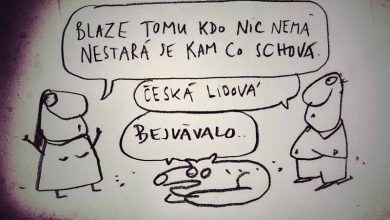 BLAZE TOMU KDO NIC NEMÁ
NESTARÁ SE KAM CO SCHOVÁ.
ČESKÁ LIDOVÁ
BEJVÁVALO..